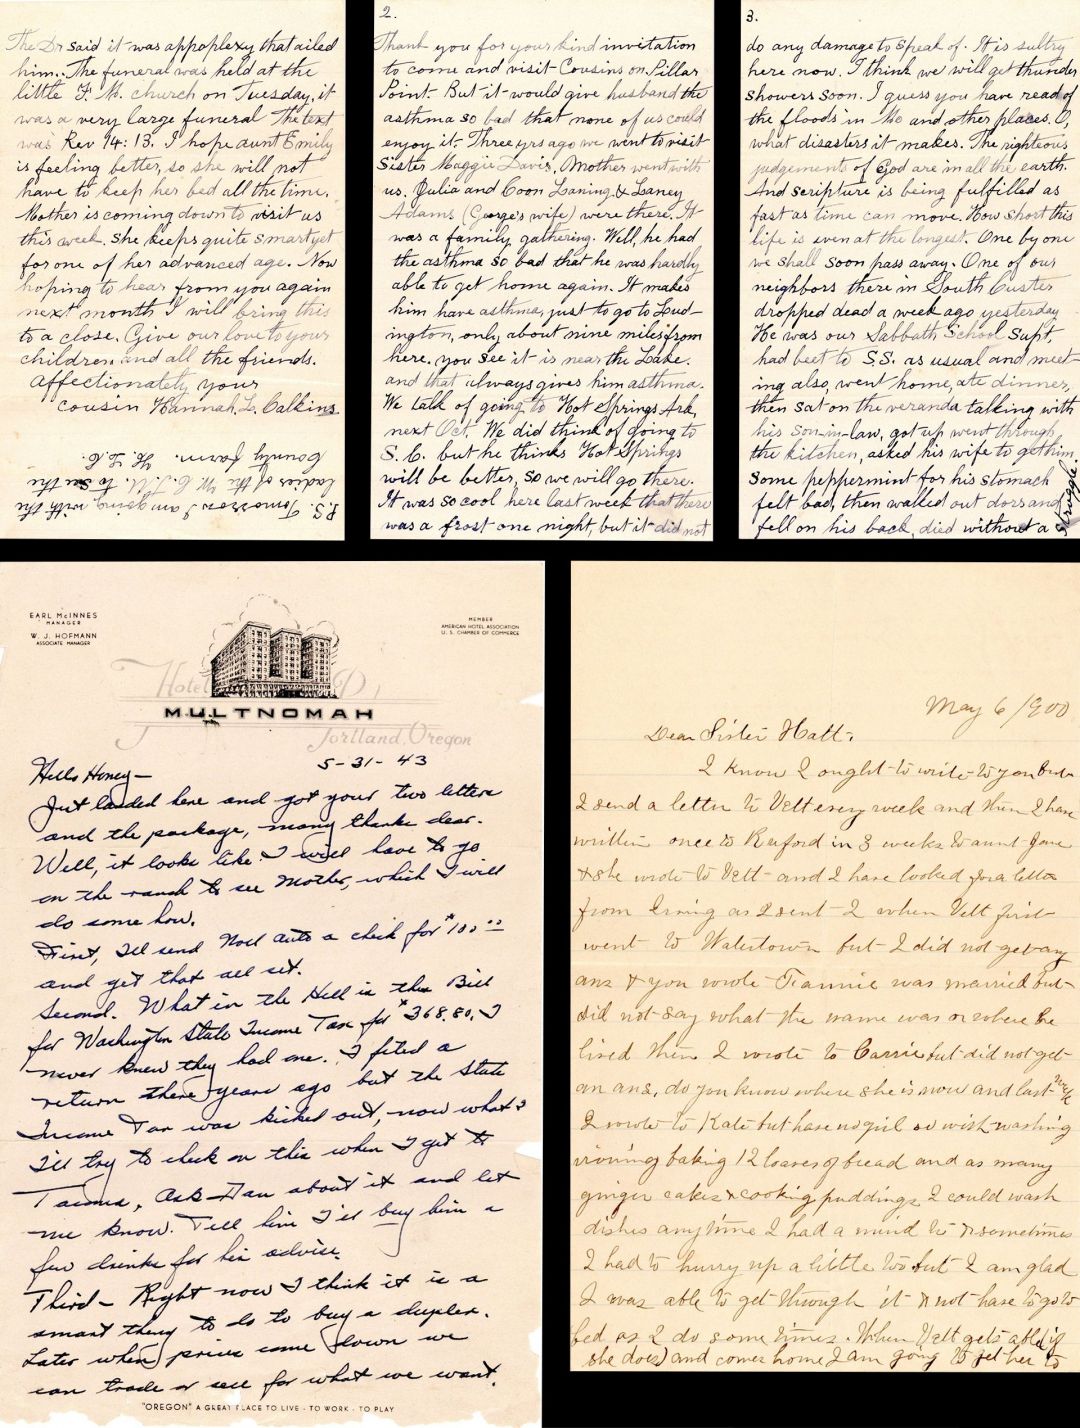 The Dr said it was appoplexy that ailed
him.. The funeral was held at the
little F. M. church on Tuesday, it
was a very large funeral The text
was Rev 14:13. I hope aunt Emily
is feeling better, so she will not
have to keep her bed all the time.
Mother is coming down to visit us
this week. She keeps quite smart yet
for one of her advanced age. Now
hoping to hear from you again
next month I will bring this
to a close. Give our love to your
children and all the friends.
affectionately your
cousin Hannah, L. Calkins
P.S. Tomorrow I am going with the
ladies of the W.C.T.U. to see the
County farm. H. L. C.
2.
Thank you for your kind invitation
to come and visit Cousins on Pillar
Point. But it would give husband the
asthma so bad that none of us could
enjoy it. Three yrs ago we went to visit
Sister Maggie Davis, Mother went with
us. Julia and Coon Laning & Laney
Adams (George's wife) were there. It
was a family gathering. Well, he had
the asthma so bad that he was hardly
able to get home again. It makes
him have asthma, just to go to Lud-
ington, only about nine miles from
here. you see it is near the Lake.
and that always gives him asthma.
We talk of going to Hot Springs Ark,
next Oct. We did think of going to
S. C. but he thinks Hot Springs
will be better, so we will go there.
It was so cool here last week that there
was a frost one night, but it did not
3.
do any damage to speak of. It is sultry
here now. I think we will get thunder
showers soon. I guess you have read of
the floods in Mo and other places. O,
what disasters it makes. The righteous
judgements of God are in all the earth.
And scripture is being fulfilled as
fast as time can move. How short this
life is even at the longest. One by one
we shall soon pass away. One of our
neighbors there in South Custer
dropped dead a week ago yesterday
He was our Sabbath School Supt,
had beet to S.S. as usual and meet-
ing also, went home, ate dinner,
then sat on the veranda talking with
his son-in-law, got up went through
the kitchen, asked his wife to get him
some peppermint for his stomach
felt bad, then walked out dors and
fell on his back, died without a
struggle.
EARL McINNES
MANAGER
W. J. HOFMANN
ASSOCIATE MANAGER
MEMBER
AMERICAN HOTEL ASSOCIATION
U. S. CHAMBER OF COMMERCE
Hotel
MULTNOMAH
Portland, Oregon
5-31-43
Hello Honey—
Just landed here and got your two letters
and the package, many thanks dear.
Well, it looks like I will have to go
on the ranch to see Mother, which I will
do some how.
First, I'll send Noel Auto a check for $100.00
and get that all set.
Second. What in the Hell is this Bill
for Washington State Income Tax for $368.80, I
never knew they had one. I filed a
return there years ago but the State
Income Tax was kicked out, now what?
I'll try to check on this when I get to
Tacoma, Ask Dan about it and let
me know. Tell him I'll buy him a
few drinks for his advise.
Third— Right now I think it is a
smart thing to do to buy a duplex.
Later when prices come down we
can trade or sell for what we want.
"OREGON" A GREAT PLACE TO LIVE - TO WORK - TO PLAY
May 6/900
Dear Sister Hatt.
I know I ought to write to you but
I send a letter to Vett every week and then I have
written once to Buford in 3 weeks to aunt Jane
& she wrote to Vett and I have looked for a letter
from Irving as I sent I when Vett first
went to Watertown but I did not get any
ans & you wrote Fannie was married but
did not say what the name was or where he
lived then I wrote to Carrie but did not get
an ans, do you know where she is now and last week
I wrote to Kate but have no girl so wish washing
ironing baking 12 loaves of bread and as many
ginger cakes & cooking puddings I could wash
dishes any time I had a mind to & sometimes
I had to hurry up a little too but I am glad
I was able to get through it & not have to go to
bed as I do some times. When Vett gets able (if
she does) and comes home I am going to get her to